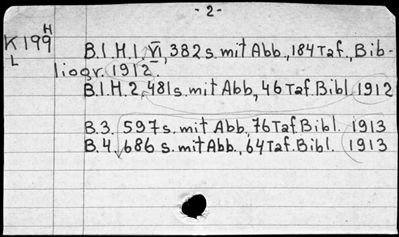 - 2 -
K 199 H
L
B.I.H.1. VI, 382 s. mit Abb., 184 Taf., Bib-
liogr. 1912.
B.I.H.2. 481 s. mit Abb., 46 Taf. Bibl. 1912
B.3. 597 s. mit Abb., 76 Taf Bibl. 1913
B.4. 686 s. mit Abb., 64 Taf. Bibl. 1913